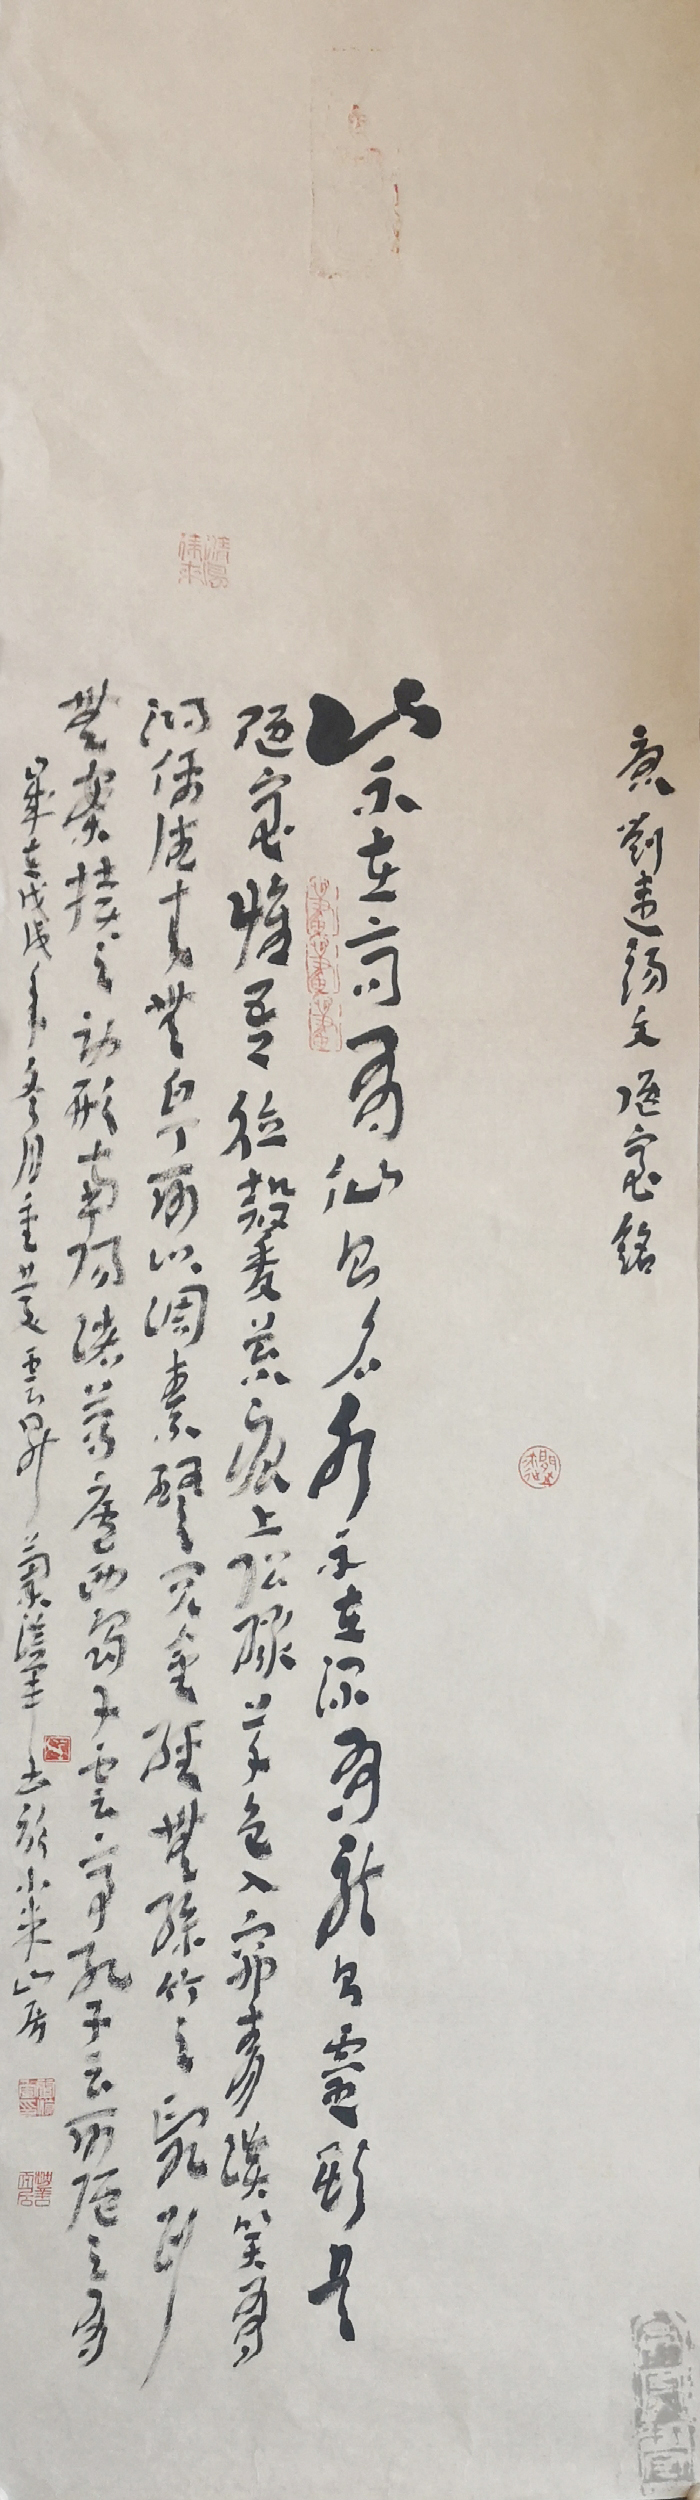 唐劉禹錫文陋室銘
山不在高有仙則名水不在深有龍則靈斯是
陋室惟吾德馨苔痕上階綠草色入簾青談笑有
鴻儒往来無白丁可以調素琴閱金經無絲竹之亂耳
無案牘之勞形南陽諸葛廬西蜀子雲亭孔子云何陋之有
歲在戊戌年冬月重慶雲昇書於小米山居